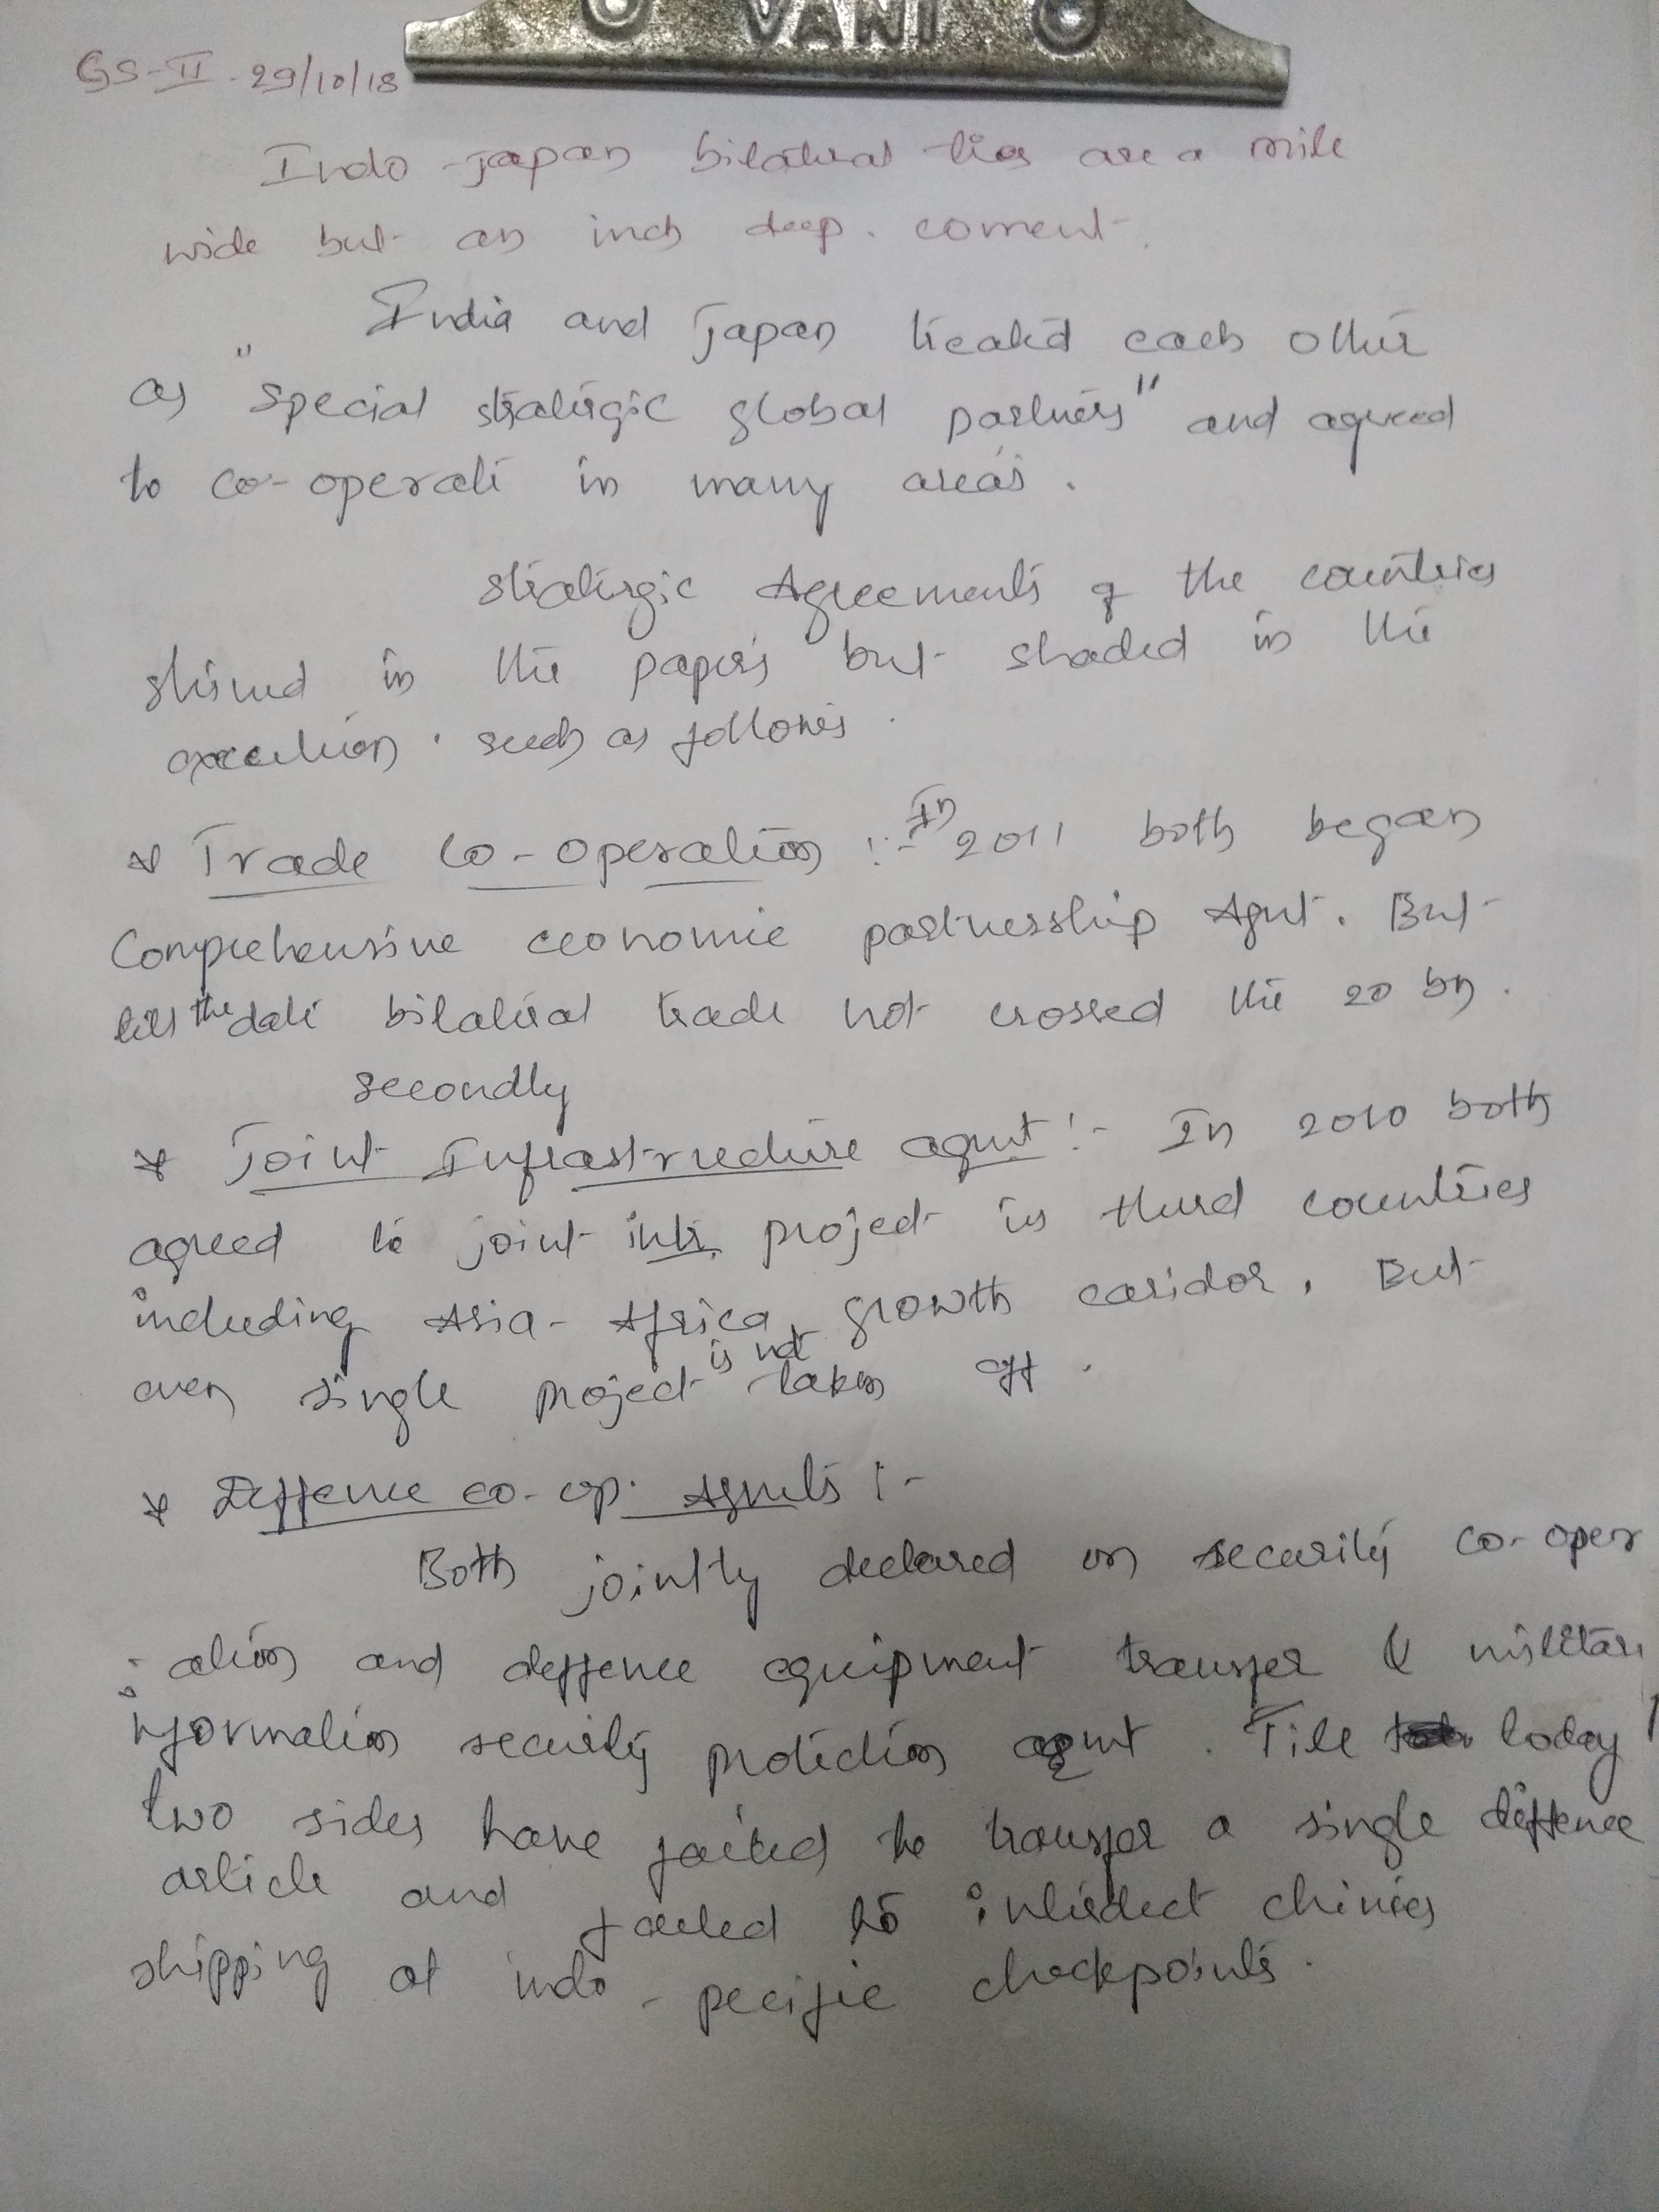 VANI
GS-II - 29/10/18
Indo-Japan bilateral ties are a mile
wide but an inch deep. coment.
India and Japan treated each other
as "special strategic global partners" and agreed
to co-operate in many areas.
strategic Agreements of the countries
shined in the papers but shaded in the
execution. such as follows.
* Trade Co-operation :- In 2011 both began
Comprehensive economic partnership Agmt. But
till the date bilateral trade not crossed the 20 bn.
secondly
* Joint Infrastructure agmt :- In 2010 both
agreed to joint infr. project in third countries
including Asia-Africa growth coridor. But
even single project is not taken off.
* Deffence co-op. Agmts :-
Both jointly declared on security co-oper
ation and deffence equipment transfer & militar
information security protection agmt. Till today
two sides have failed to transfer a single deffence
article and failed to interdict chinies
shipping at indo-pecific checkpoints.